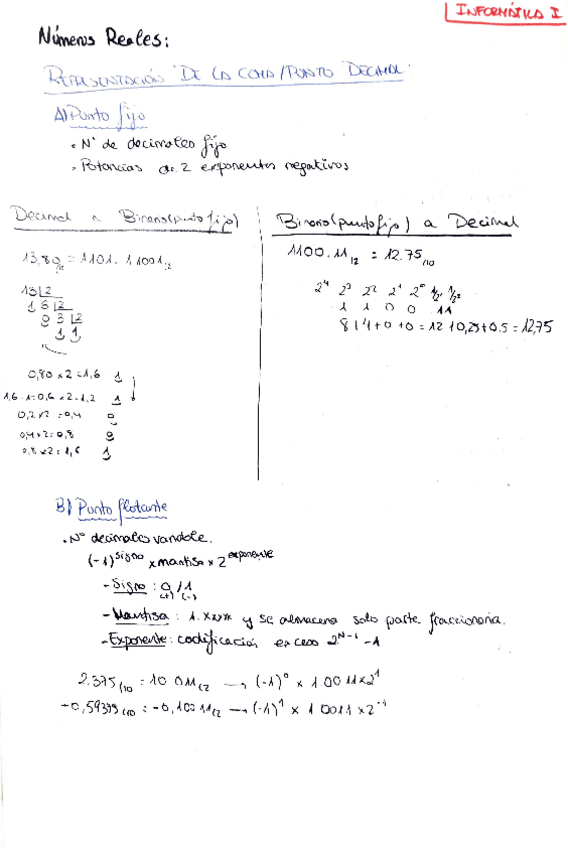 INFORMÁTICA I
Números Reales:
REPRESENTACIÓN DE LA COMA/PUNTO DECIMAL:
A) Punto fijo
• Nº de decimales fijo
• Potencias de 2 exponentes negativos
Decimal a Binario (punto fijo)
13,80/10 = 1101.11001/2
13 |2
1 6 |2
0 3 |2
1 1
0,80 x 2 = 1,6 1
1,6-1=0,6 x 2 = 1,2 1
0,2x2 = 0,4 0
0,4x2=0,8 0
0,8 x2 = 1,6 1
Binario (punto fijo) a Decimal
1100.11/2 = 12.75/10
2⁴ 2³ 2² 2¹ 2⁰ 1/2 1/2²
1 1 0 0 11
8+4+0+0=12+0,25+0.5=12,75
B) Punto flotante
• Nº decimales variable.
(-1)^signo x mantisa x 2^exponente
- Signo: 0/1
(+) (-)
- Mantisa: 1.xxxx y se almacena solo parte fraccionaria.
- Exponente: codificación exceso 2^N-1 -1
2.375/10 = 10 011/2 → (-1)⁰ x 1 0011x2¹
-0,59375/10 = -0,10011/2 → (-1)¹ x 1 0011 x 2⁻¹